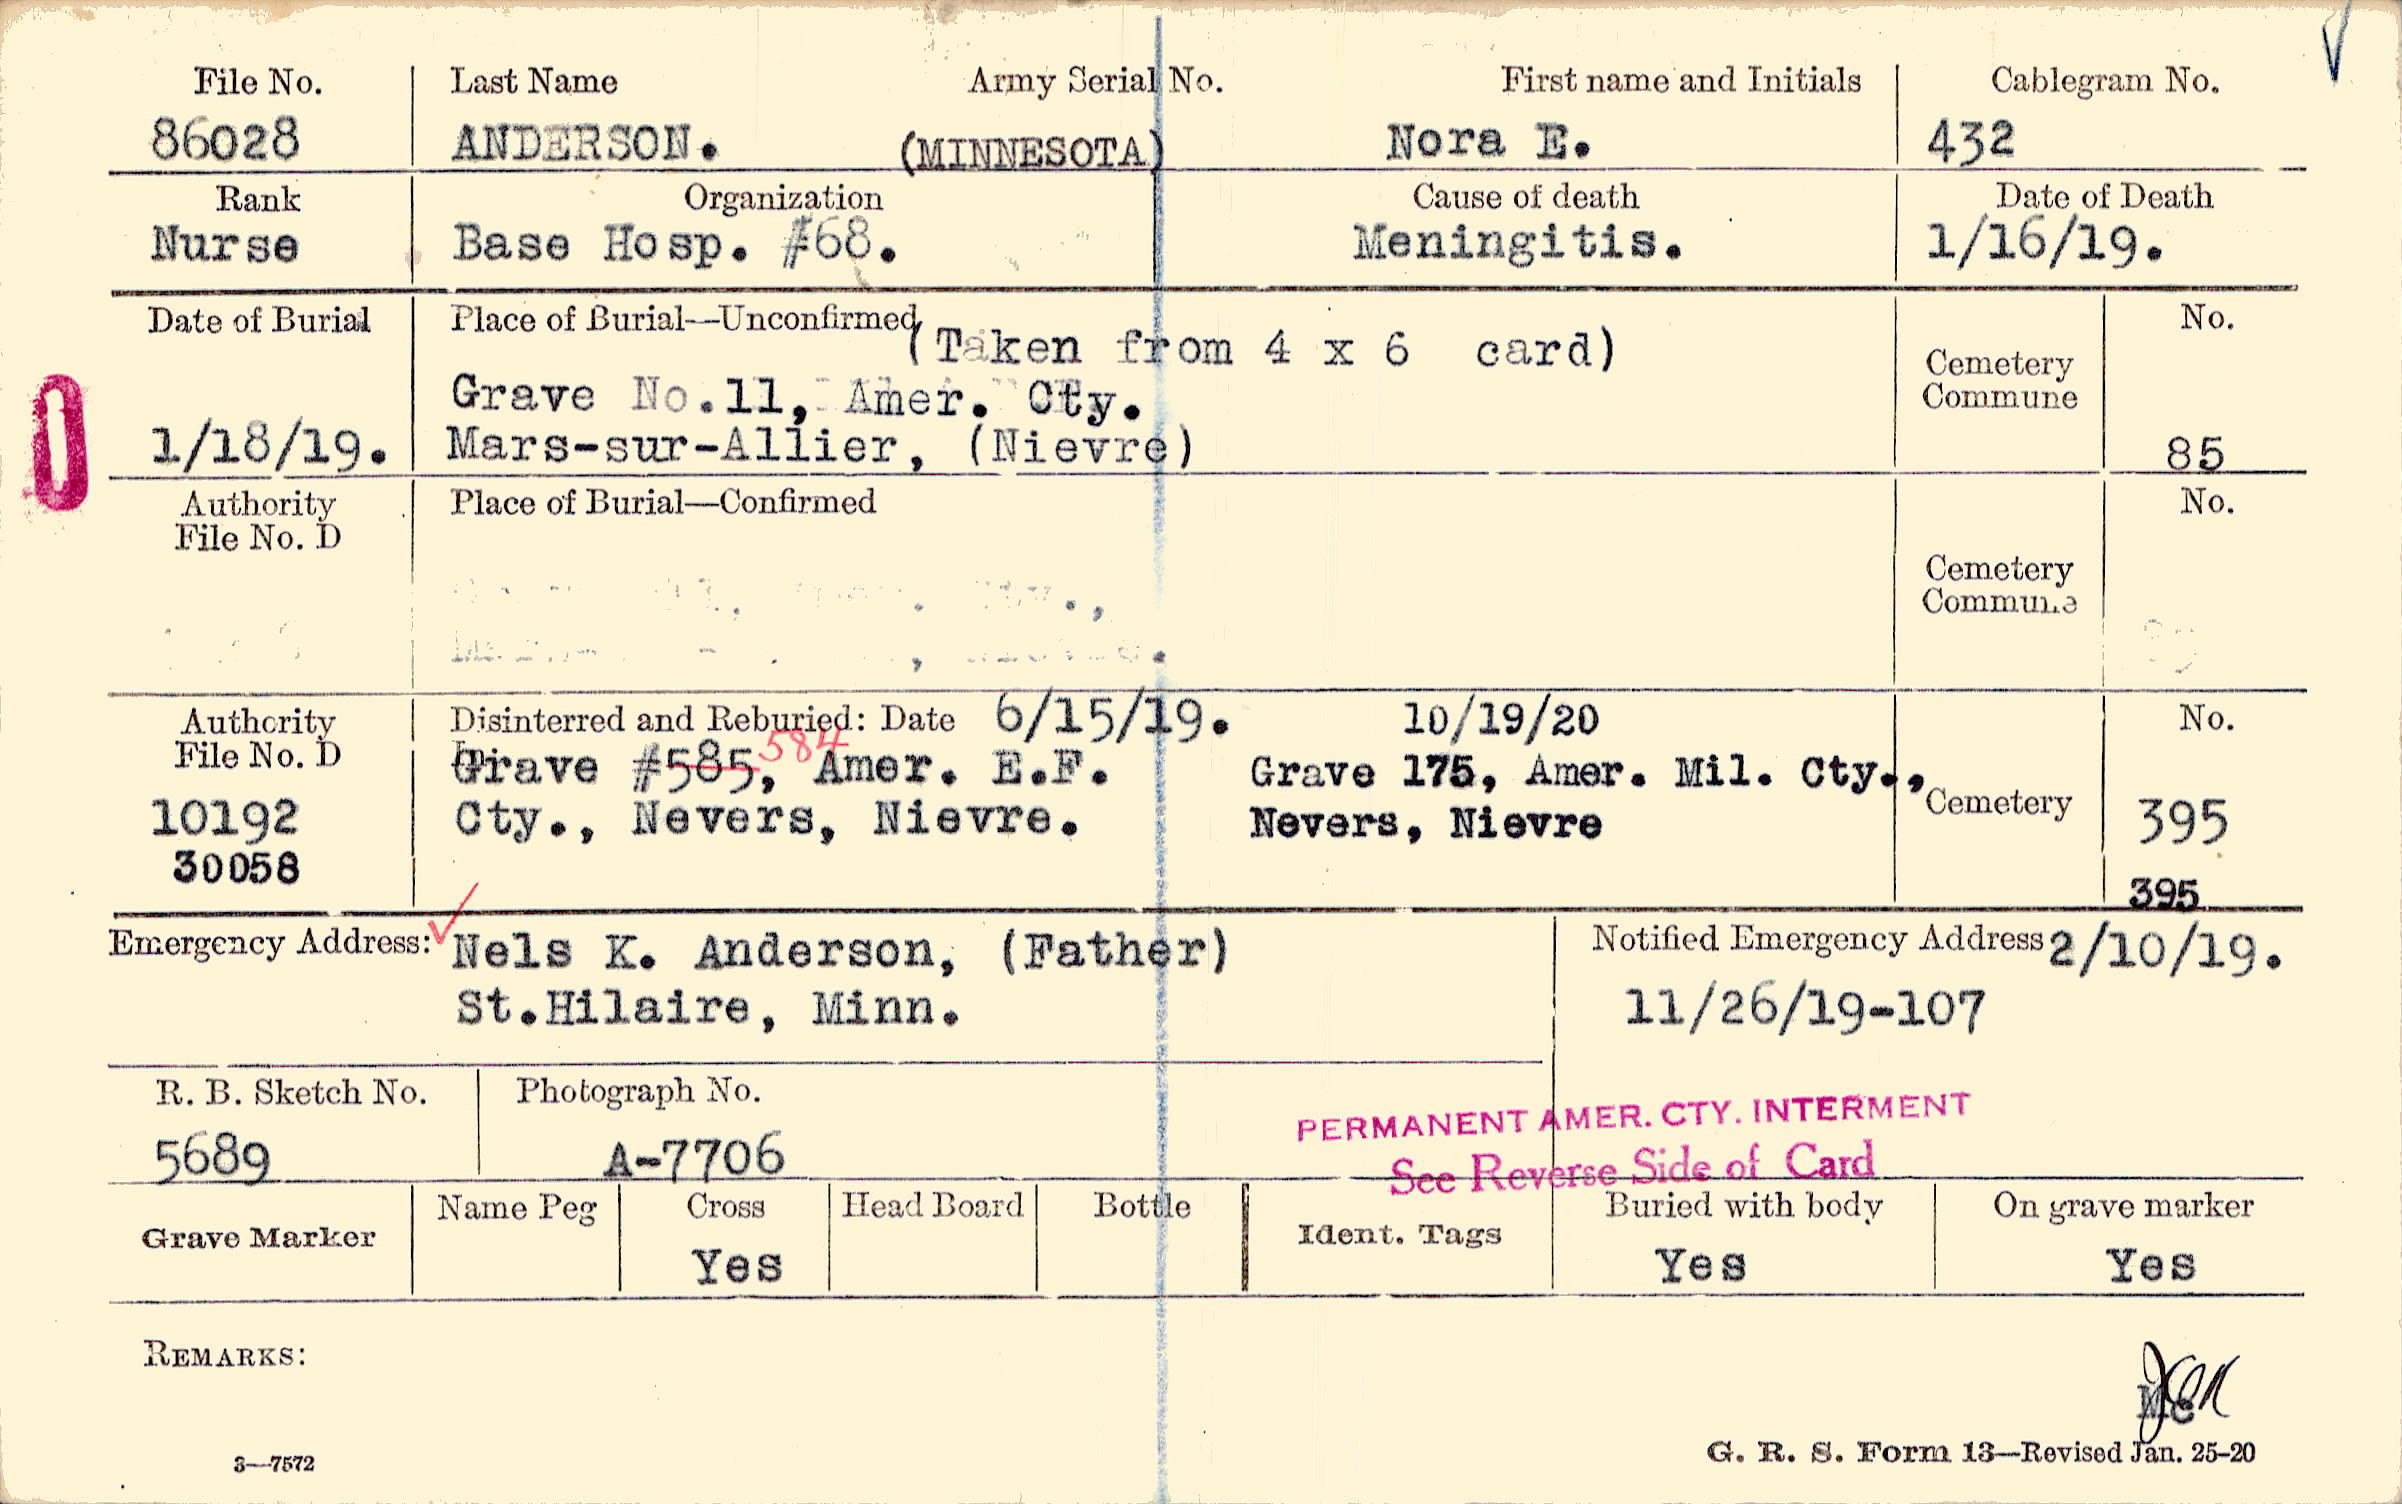 File No. Last Name Army Serial No. First name and Initials Cablegram No.
86028 ANDERSON. (MINNESOTA) Nora E. 432
Rank Organization Cause of death Date of Death
Nurse Base Hosp. #68. Meningitis. 1/16/19.
Date of Burial Place of Burial—Unconfirmed No.
(Taken from 4 x 6 card)
Cemetery
Commune
Grave No.11, Amer. Cty.
1/18/19. Mars-sur-Allier, (Nievre) 85
Authority Place of Burial—Confirmed No.
File No. D
Cemetery
Commune
Authority Disinterred and Reburied: Date 6/15/19. 10/19/20 No.
File No. D Grave #585, 584 Amer. E.F. Grave 175, Amer. Mil. Cty.,
Cemetery
10192 Cty., Nevers, Nievre. Nevers, Nievre 395
30058 395
Emergency Address: Nels K. Anderson, (Father) Notified Emergency Address 2/10/19.
St.Hilaire, Minn. 11/26/19-107
R. B. Sketch No. Photograph No.
PERMANENT AMER. CTY. INTERMENT
5689 A-7706 See Reverse Side of Card
Name Peg Cross Head Board Bottle Buried with body On grave marker
Grave Marker Ident. Tags
Yes Yes Yes
REMARKS:
3—7572 G. R. S. Form 13—Revised Jan. 25-20